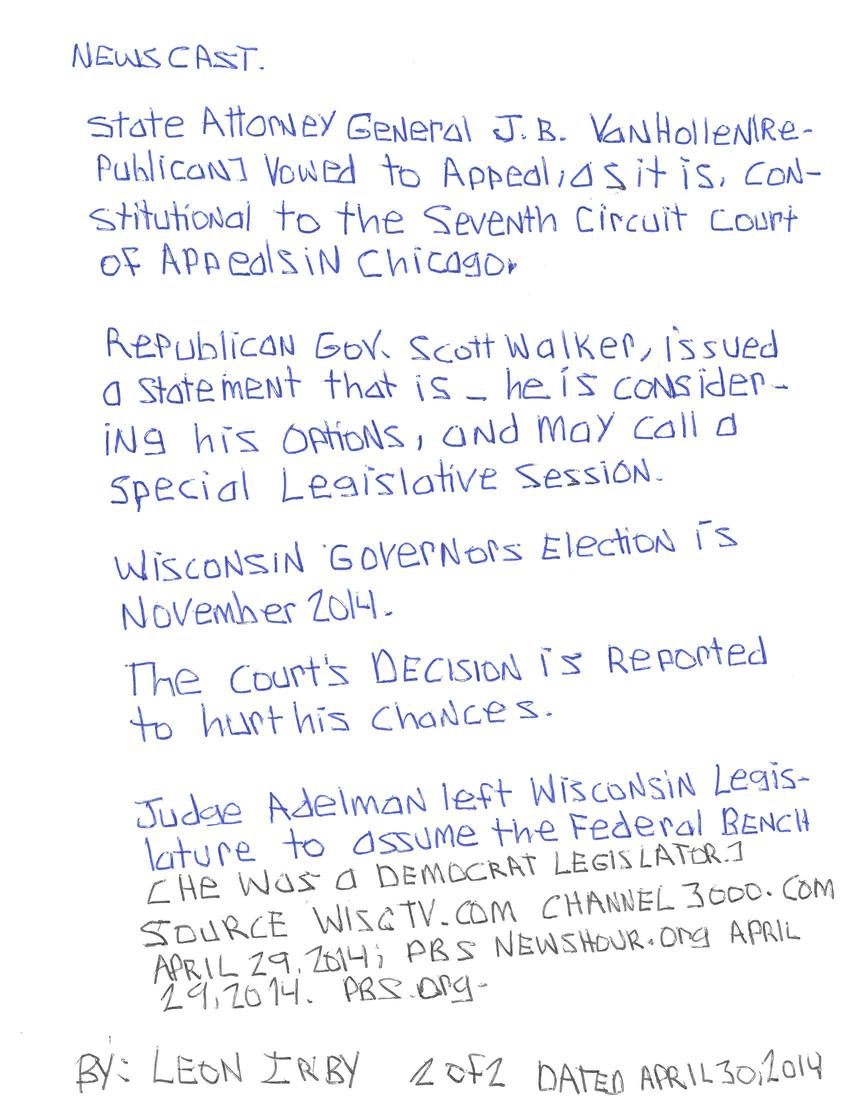 NEWSCAST.
State Attorney General J.B. VanHollen[Re-
publican] Vowed to Appeal; as it is, con-
stitutional to the Seventh Circuit Court
of Appeals in Chicago.
Republican Gov. Scott Walker, issued
a statement that is – he is consider-
ing his options, and may call a
special Legislative Session.
Wisconsin Governors Election is
November 2014.
The Court's DECISION is Reported
to hurt his chances.
Judge Adelman left Wisconsin Legis-
lature to assume the Federal BENCH
[HE WAS a DEMOCRAT LEGISLATOR.]
SOURCE WISCTV.COM CHANNEL 3000.COM
APRIL 29, 2014; PBS NEWSHOUR.Org APRIL
29, 2014. PBS.Org-
BY: LEON IRBY 2 of 2 DATED APRIL 30, 2014